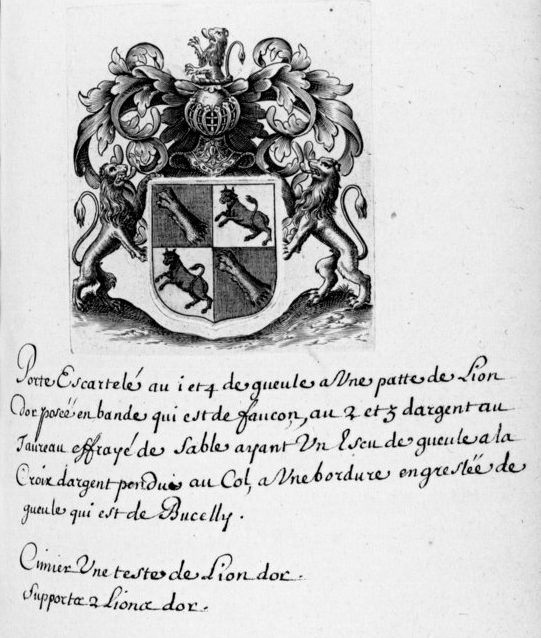 Porte Escartelé au 1 et 4 de gueule a Vne patte de Lion
dor poseé en bande qui est de faucon, au 2 et 3 dargent au
Taureau effrayé de sable ayant Vn Escu de gueule a la
Croix dargent pendue au Col, a Vne bordure engresleë de
gueule qui est de Bucelly.
Cimier Vne teste de Lion dor.
Supportx 2 Lionx dor.